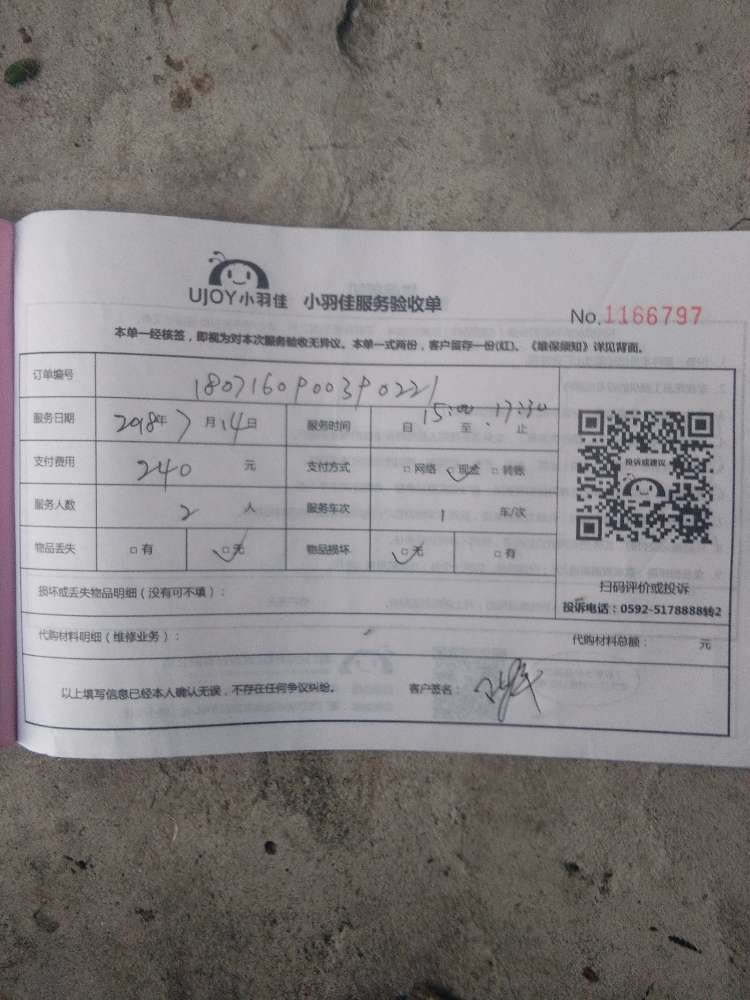 UJOY小羽佳 小羽佳服务验收单
No.1166797
本单一经核签，即视为对本次服务验收无异议。本单一式两份，客户留存一份(红)、《维保须知》详见背面。
订单编号 1807160900390221
服务日期 2018年7月14日 服务时间 自15:00至17:30止
支付费用 240元 支付方式 □网络 ✓现金 □转账
服务人数 2人 服务车次 1车/次
物品丢失 □有 ✓无 物品损坏 ✓无 □有
投诉或建议
扫码评价或投诉
投诉电话：0592-5178888转2
损坏或丢失物品明细（没有可不填）：
代购材料明细（维修业务）： 代购材料总额： 元
以上填写信息已经本人确认无误，不存在任何争议纠纷。 客户签名：